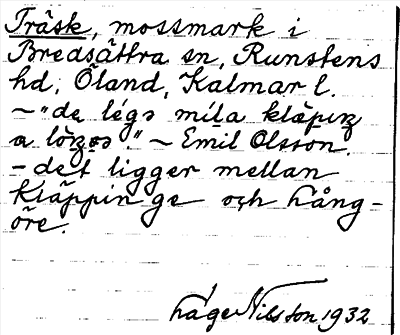 Träsk, mossmark i
Bredsättra sn, Runstens
hd, Öland, Kalmar l.
~ "de légə míla kläpıŋ
a löŋəə." ~ Emil Olsson.
- det ligger mellan
Kläppinge och Lång-
öre.
Låge Nilsson 1932